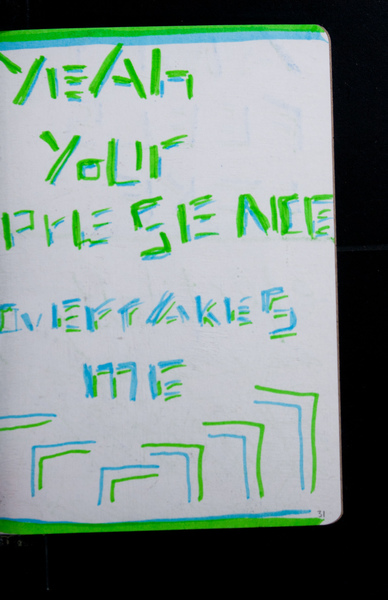 YEAh
YOUr
PrESENCE
OVErTAKES
ME
31